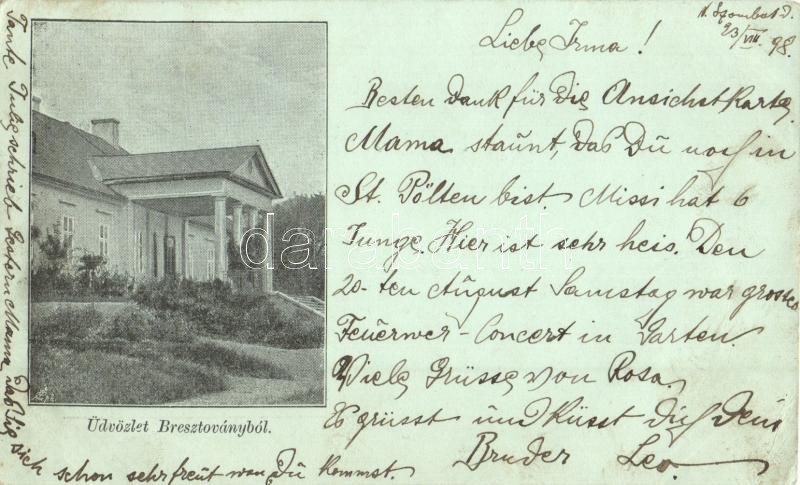 N. Szombat d.
23/VIII. 98.
Liebe Irma!
Besten Dank für die Ansichtskarte,
Mama staunt, das Du noch in
St. Pölten bist Missi hat 6
Junge. Hier ist sehr heis. Den
20-ten August Samstag war grostes
Feuerwer-Concert in Garten.
Viele Grüsse von Rosa.
Es grüsst und küsst dich dein
Bruder Leo.
Tante Julie schrieb gestern Mama das sie sich
schon sehr freut wan Du kommst.
Üdvözlet Bresztoványból.
darabanth